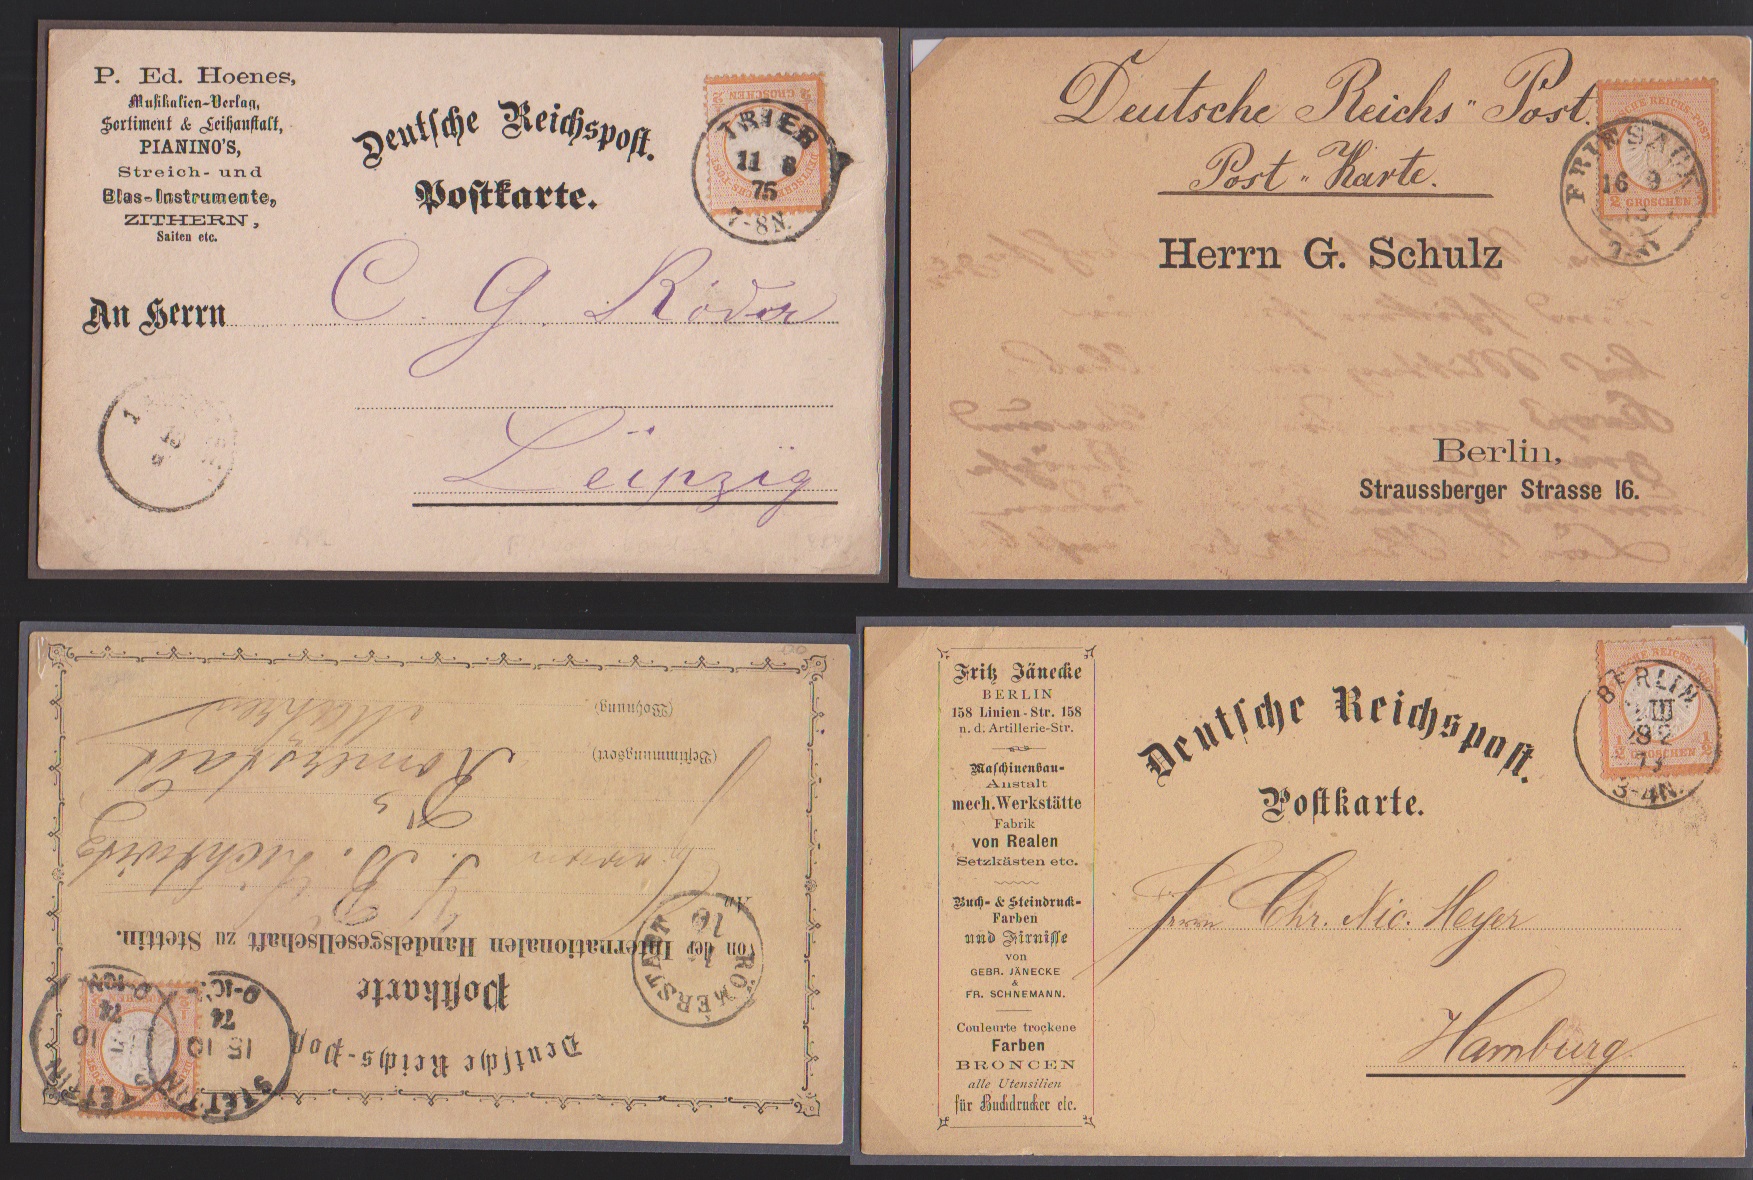 P. Ed. Hoenes,
Musikalien-Verlag,
Sortiment & Leihanstalt,
PIANINO'S,
Streich- und
Blas-Instrumente,
ZITHERN,
Saiten etc.
Deutsche Reichspost.
Postkarte.
½ GROSCHEN
TRIER
11 8
75
7-8N.
An Herrn C. G. Röder
Leipzig
Deutsche Reichs" Post.
Post" Karte.
FRIESACK
16 9
½ GROSCHEN
Herrn G. Schulz
Berlin,
Straussberger Strasse 16.
Deutsche Reichs-Post
Postkarte
von der Internationalen Handelsgesellschaft zu Stettin.
STETTIN
15 10
74
RÖMERSTADT
16
An
J. B. Lichtwitz
Römerstadt
(Bestimmungsort)
Mähren
(Wohnung)
Fritz Jänecke
BERLIN
158 Linien-Str. 158
n. d. Artillerie-Str.
Maschinenbau-
Anstalt
mech. Werkstätte
Fabrik
von Realen
Setzkästen etc.
Buch- & Steindruck-
Farben
und Firnisse
von
GEBR. JÄNECKE
&
FR. SCHNEMANN.
Couleurte trockene
Farben
BRONCEN
alle Utensilien
für Buchdrucker etc.
Deutsche Reichspost.
Postkarte.
BERLIN
III
3-4N.
½ GROSCHEN ½
Herrn Chr. Nic. Meyer
Hamburg